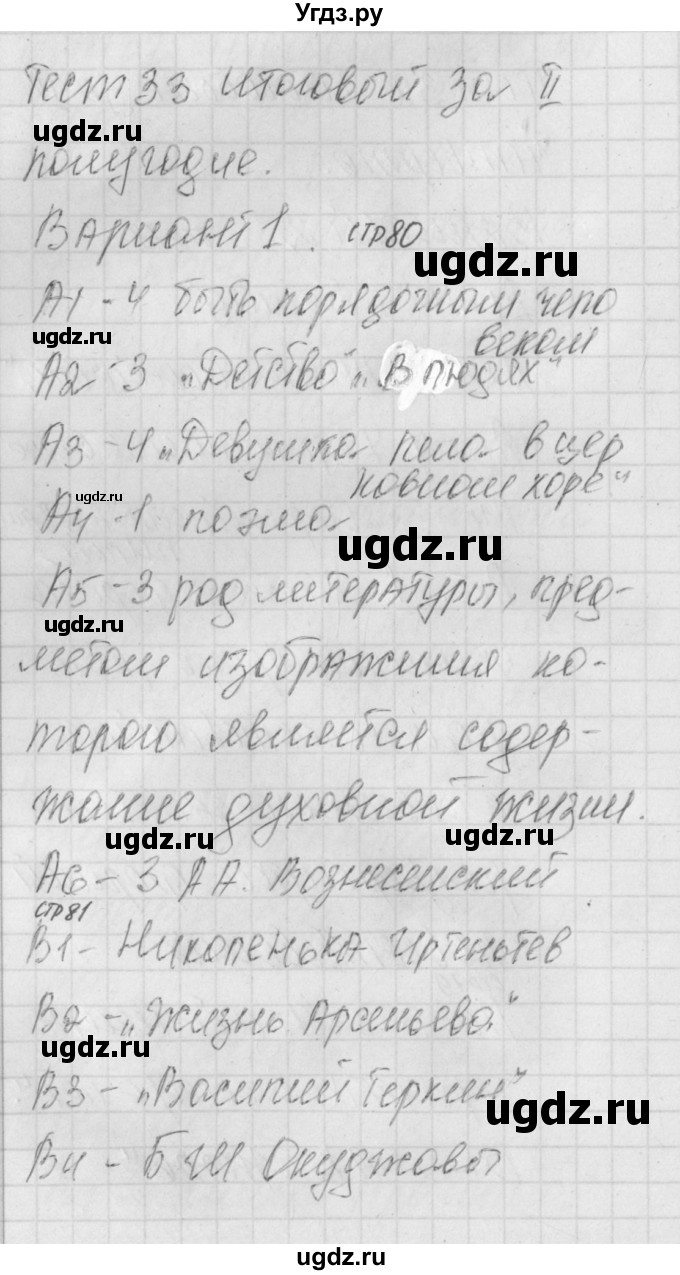 Угдз.ру
Тест 33 итоговый за II
ugdz.ru
полугодие.
Вариант 1. стр 80
ugdz.ru
А1 - 4 быть порядочным чело
веком
ugdz.ru
А2 - 3 „Детство" „В людях"
А3 - 4 „Девушка пела в цер
ковном хоре"
ugdz.ru
А4 - 1 поэма
ugdz.ru
А5 - 3 род литературы, пред-
ugdz.ru
метом изображения ко-
торого является содер-
жание духовной жизни.
ugdz.ru
ugdz.ru
А6 - 3 А А. Вознесенский
стр 81
В1 - Николенька Иртеньтев
В2 - „Жизнь Арсеньева"
ugdz.ru
В3 - „Василий Теркин"
ugdz.ru
В4 - Б Ш Окуджавы
ugdz.ru